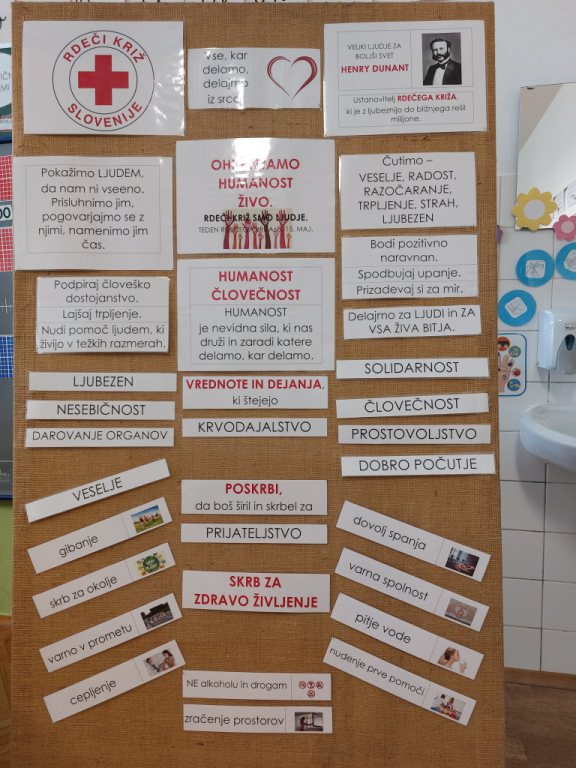 RDEČI KRIŽ
SLOVENIJE
Vse, kar
delamo,
delajmo
iz srca.
VELIKI LJUDJE ZA
BOLJŠI SVET
HENRY DUNANT
Ustanovitelj RDEČEGA KRIŽA,
ki je z ljubeznijo do bližnjega rešil
milijone.
Pokažimo LJUDEM,
da nam ni vseeno.
Prisluhnimo jim,
pogovarjajmo se z
njimi, namenimo jim
čas.
HUMANOST
ŽIVO.
RDEČI KRIŽ SMO LJUDJE.
15. MAJ.
Čutimo –
VESELJE, RADOST,
RAZOČARANJE,
TRPLJENJE, STRAH,
LJUBEZEN
Podpiraj človeško
dostojanstvo.
Lajšaj trpljenje.
Nudi pomoč ljudem, ki
živijo v težkih razmerah.
HUMANOST
ČLOVEČNOST
HUMANOST
je nevidna sila, ki nas
druži in zaradi katere
delamo, kar delamo.
Bodi pozitivno
naravnan.
Spodbujaj upanje.
Prizadevaj si za mir.
Delajmo za LJUDI in ZA
VSA ŽIVA BITJA.
LJUBEZEN
NESEBIČNOST
DAROVANJE ORGANOV
VREDNOTE IN DEJANJA,
ki štejejo
KRVODAJALSTVO
SOLIDARNOST
ČLOVEČNOST
PROSTOVOLJSTVO
DOBRO POČUTJE
VESELJE
gibanje
skrb za okolje
varno v prometu
cepljenje
POSKRBI,
da boš širil in skrbel za
PRIJATELJSTVO
SKRB ZA
ZDRAVO ŽIVLJENJE
NE alkoholu in drogam
zračenje prostorov
dovolj spanja
varna spolnost
pitje vode
nudenje prve pomoči